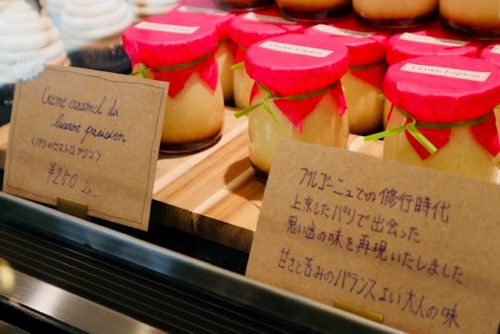 I Love Lepton
I Love Lepton
I Love Lepton
Crème caramel du
bistrot parisien
(パリのビストロプリン)
¥250
ブルゴーニュでの修行時代
上京したパリで出会った
思い出の味を再現いたしました
甘さと苦みのバランスよい大人の味